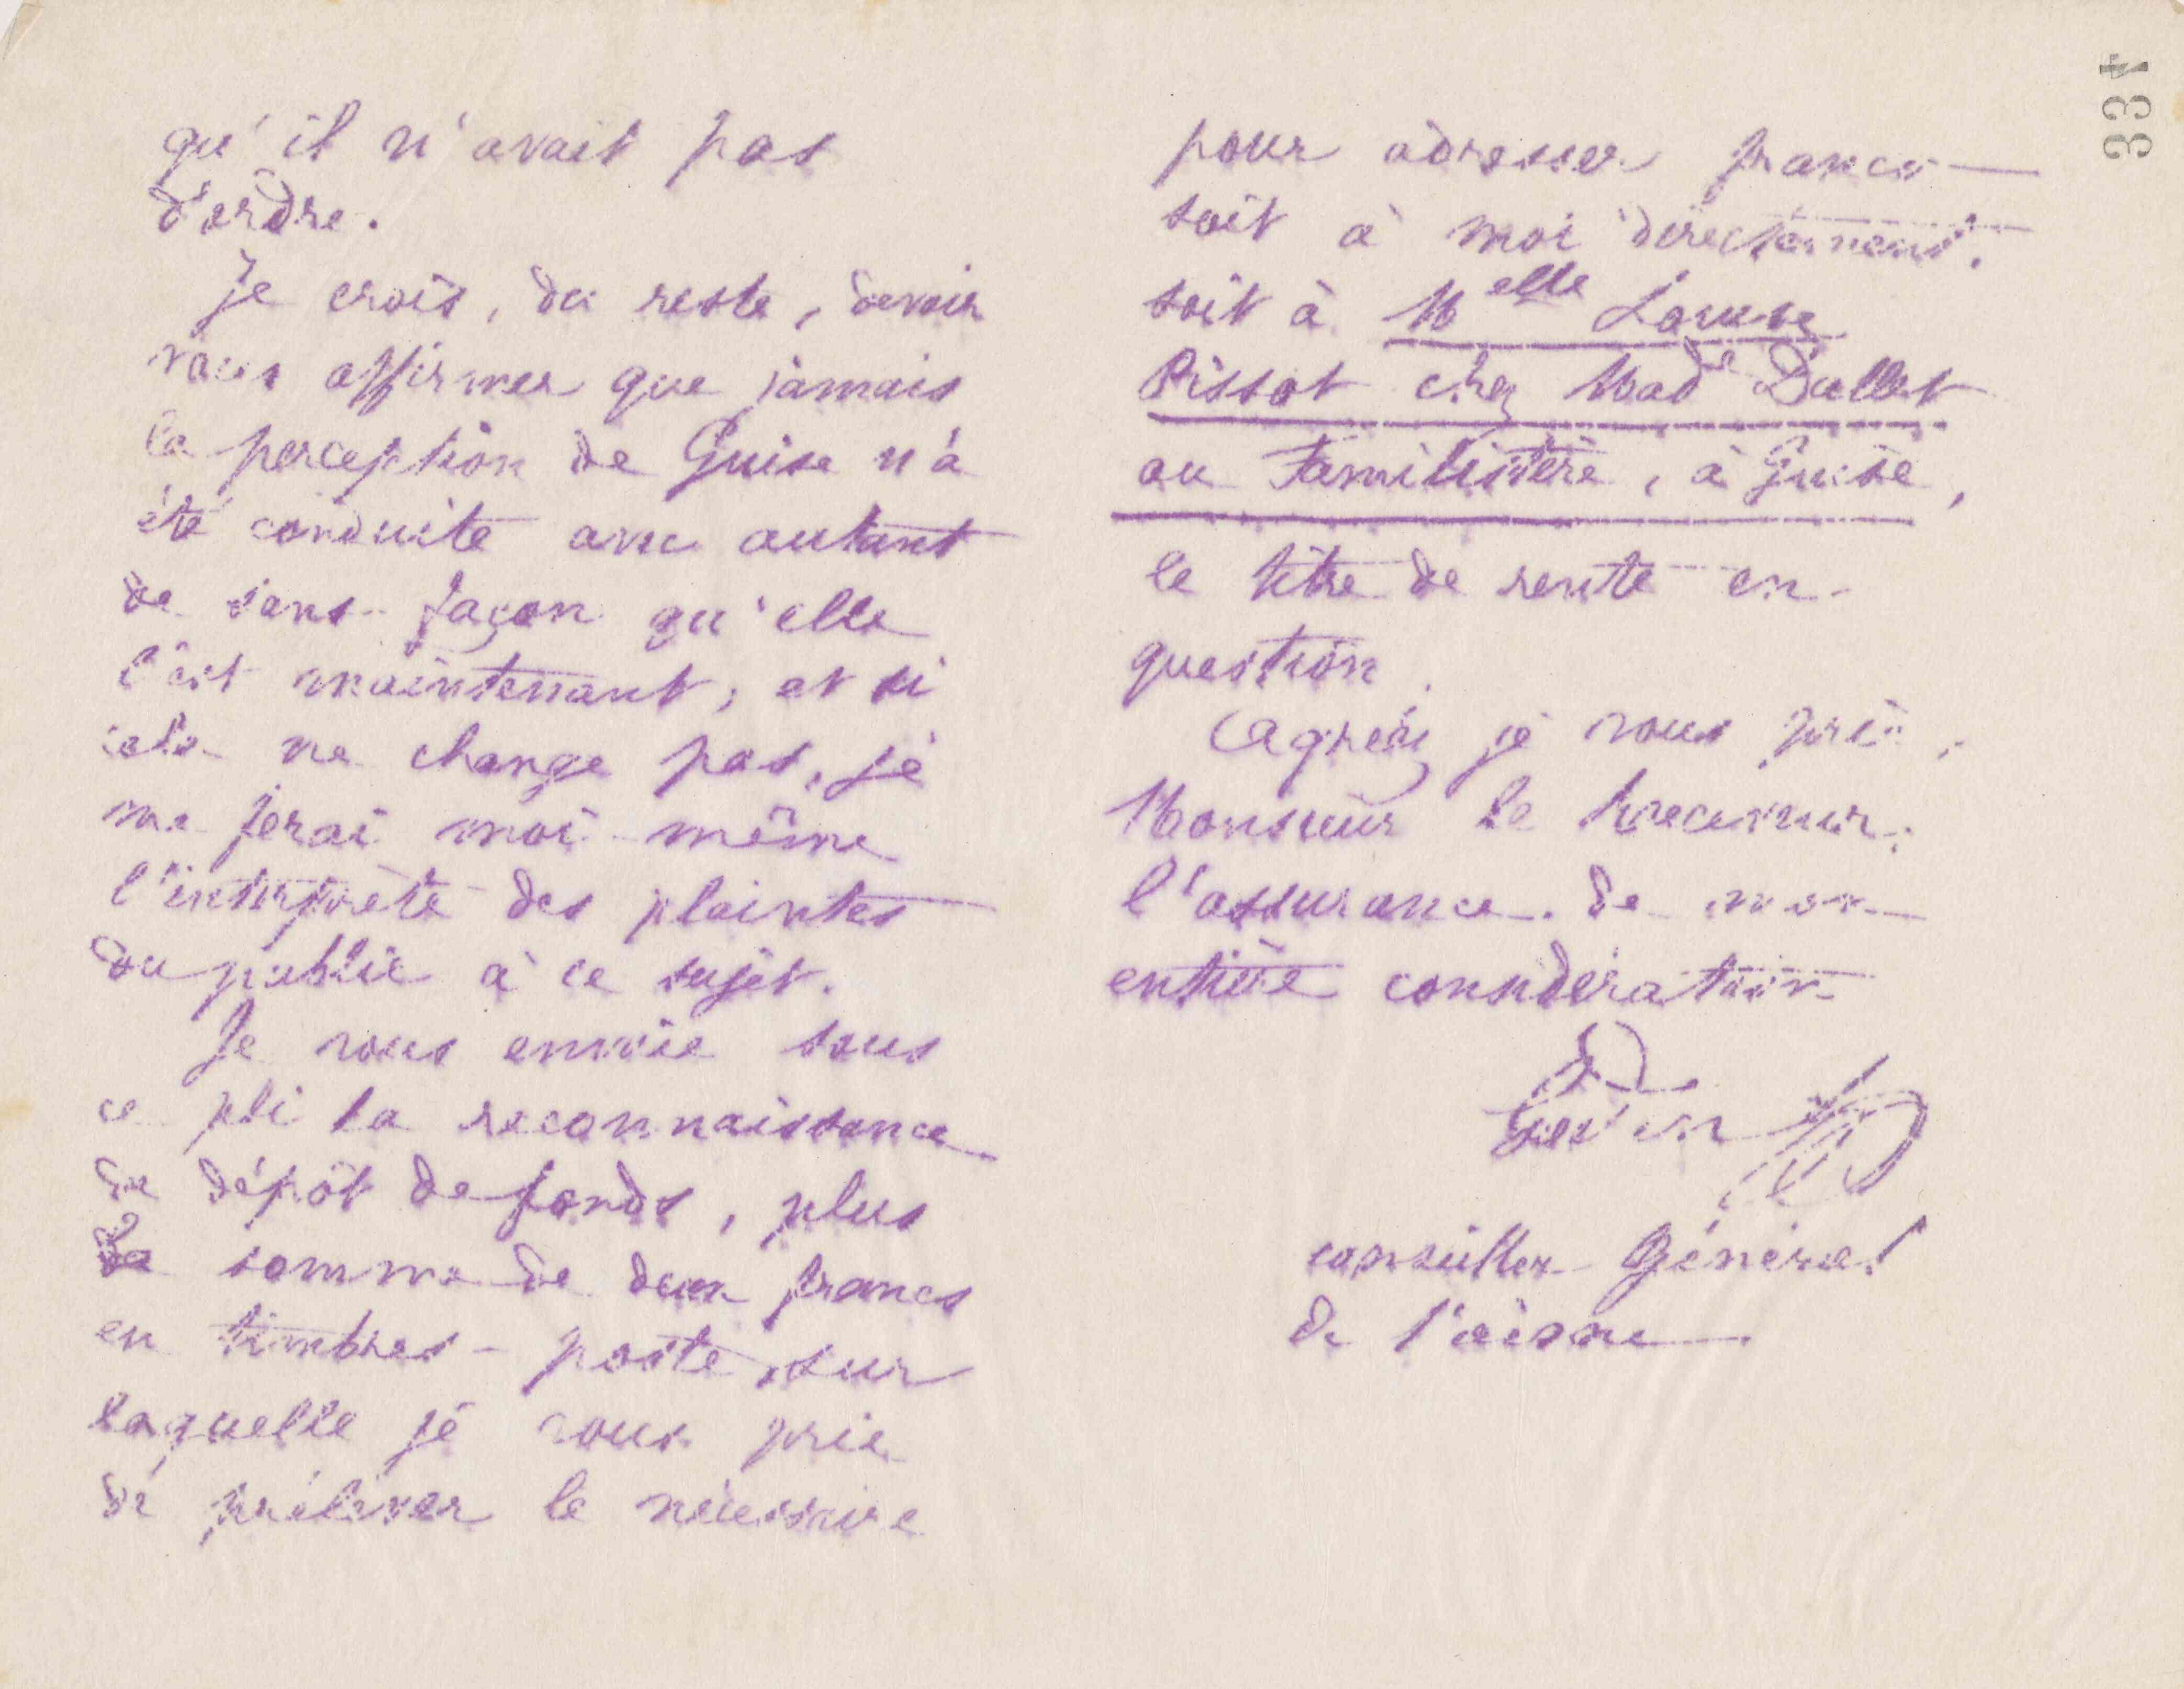 qu'il n'avait pas
d'ordre.
Je crois, du reste, devoir
vous affirmer que jamais
la perception de Guise n'a
été conduite avec autant
de sans-façon qu'elle
l'est maintenant, et si
cela ne change pas, je
me ferai moi-même
l'interprète des plaintes
du public à ce sujet.
Je vous envoie sous
ce pli la reconnaissance
du dépôt de fonds, plus
la somme de deux francs
en timbres-poste sur
laquelle je vous prie
de prélever le nécessaire
334
pour adresser franco
soit à moi directement,
soit à Melle Louise
Pissot chez Made Dallet
au Familistère, à Guise,
le titre de rente en
question.
Agréez je vous prie,
Monsieur le Receveur,
l'assurance de mon
entière considération
Godin
conseiller Général
de l'aisne